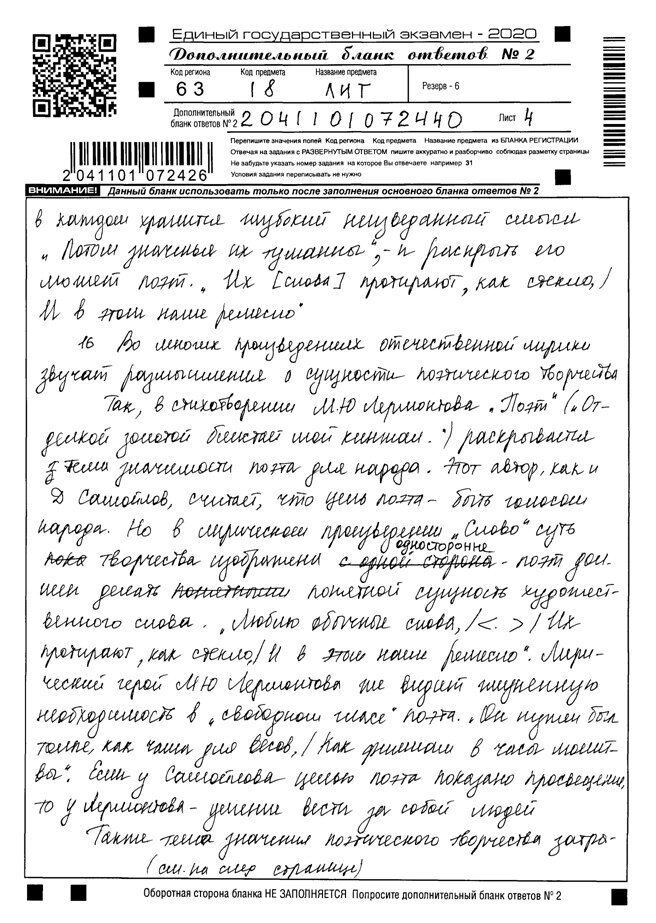 Единый государственный экзамен - 2020
Дополнительный бланк ответов № 2
Код региона Код предмета Название предмета
Резерв - 6
63 18 ЛИТ
Дополнительный бланк ответов № 2 2041101072440 Лист 4
Перепишите значения полей Код региона Код предмета Название предмета из БЛАНКА РЕГИСТРАЦИИ
Отвечая на задания с РАЗВЕРНУТЫМ ОТВЕТОМ пишите аккуратно и разборчиво соблюдая разметку страницы
Не забудьте указать номер задания на которое Вы отвечаете например 31
Условия задания переписывать не нужно
2041101 072426
ВНИМАНИЕ! Данный бланк использовать только после заполнения основного бланка ответов № 2
в каждом хранится глубокий неизведанный смысл
„Потом значенья их туманны", - и раскрыть его
может поэт. „Их [слова] протирают, как стекло, /
И в этом наше ремесло"
16 Во многих произведениях отечественной лирики
звучат размышления о сущности поэтического творчества
Так, в стихотворении М.Ю Лермонтова „Поэт" („От-
делкой золотой блистает мой кинжал.") раскрывается
тема значимости поэта для народа. Этот автор, как и
Д Самойлов, считает, что цель поэта - быть голосом
народа. Но в лирическом произведении „Слово" суть
пока творчества изображена с одной стороны односторонне - поэт дол-
жен делать понятной сущность художест-
венного слова. „Люблю обычные слова, / <. > / Их
протирают, как стекло, / И в этом наше ремесло". Лири-
ческий герой М Ю Лермонтова же видит жизненную
необходимость в „свободном гласе" поэта. „Он нужен был
толпе, как чаша для весов, / Как фимиам в часы молит-
вы". Если у Самойлова целью поэта показано просвещение,
то у Лермонтова - умение вести за собой людей
Также тема значения поэтического творчества затра-
(см. на след странице)
Оборотная сторона бланка НЕ ЗАПОЛНЯЕТСЯ Попросите дополнительный бланк ответов № 2